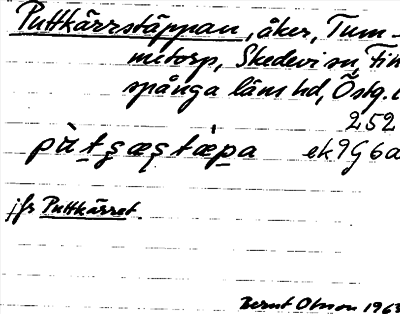 Puttkärrstäppan, åker, Tum-
metorp, Skedevi sn, Fin
spånga läns hd, Östg. l
252
ek 9G 6a
jfr Puttkärret
Bernt Olsson 1963